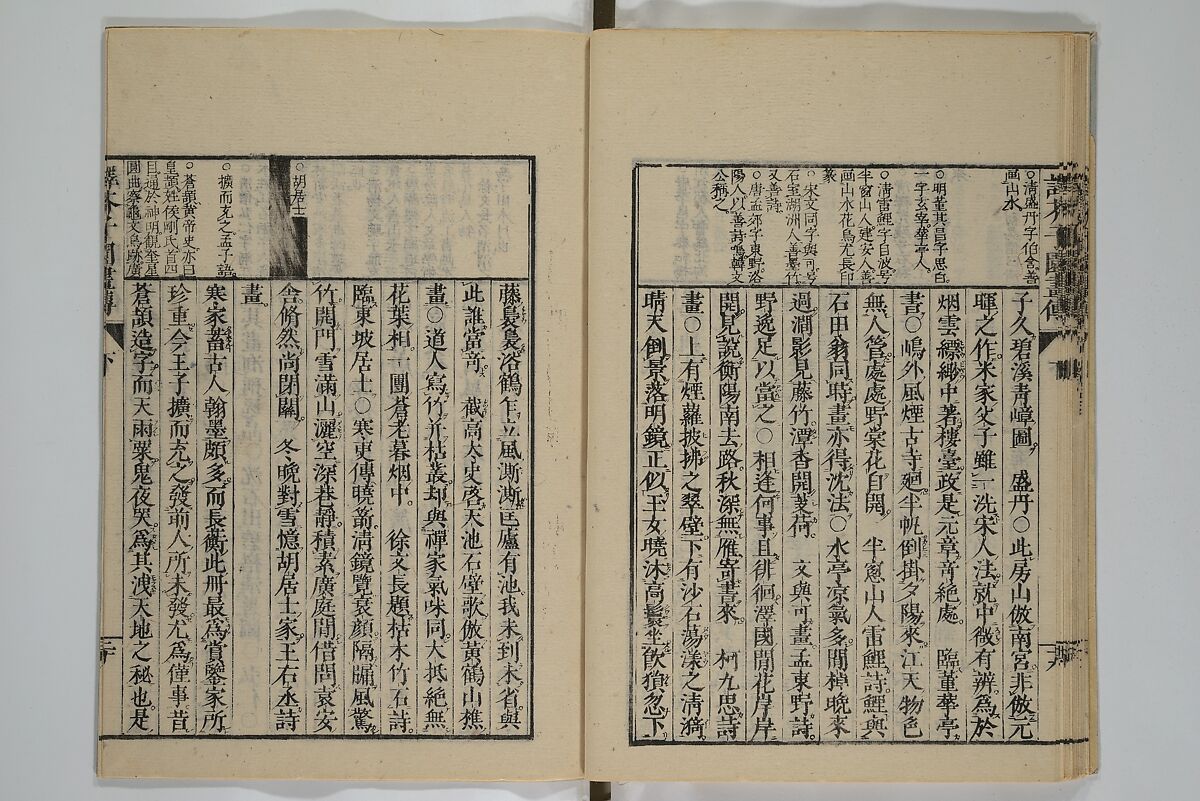 ○清盛丹字伯含善
画山水
○明董其昌字思白
一字玄宰華亭人
○清雷鯉字自波号
半窓山人建安人善
画山水花鳥尤長印
篆
○宋文同字與可号
石室湖洲人善畫竹
又善詩
○唐孟郊字東野洛
陽人以善詩鳴韓文
公稱之
子久碧溪青嶂圖　盛丹○此房山倣南宮非倣元
暉之作米家父子雖一洗宋人法就中微有辨爲於
烟雲縹緲中著樓臺政是元章奇絶處　臨董華亭
畫○嶋外風煙古寺廻半帆倒掛夕陽來江天物色
無人管處處野棠花自開　半窓山人雷鯉詩鯉與
石田翁同時畫亦得沈法○水亭凉氣多閒棹晚來
過澗影見藤竹潭香聞芰荷　文與可畫孟東野詩
野逸足以當之○相逢何事且徘徊澤國閒花岸岸
開見説衡陽南去路秋深無雁寄書來　柯九思詩
畫○上有煙蘿披拂之翠壁下有沙石蕩漾之清漪
晴天倒景落明鏡正似玉女曉沐高鬟坐飲猿忽下
○胡居士
○擴而充之孟子語
○蒼頡黄帝史亦曰
皇頡姓侯剛氏首四
目通於神明觀奎星
圓曲察龜文鳥跡廣
藤裊裊浴鶴乍立風澌澌匡廬有池我未到未省與
此誰當奇　截高太史啓天池石壁歌倣黃鶴山樵
畫○道人寫竹并枯叢却與禪家氣味同大抵絶無
花葉相一團蒼老暮烟中　徐文長題枯木竹石詩
臨東坡居士○寒更傳曉箭清鏡覽衰顔隔牖風驚
竹開門雪滿山灑空深巷靜積素廣庭閒借問袁安
舍翛然尚閉關　冬晩對雪憶胡居士家王右丞詩
畫
寒家畜古人翰墨頗多而長蘅此册最爲賞鑒家所
珍重今王子擴而充之發前人所未發尤爲僅事昔
蒼頡造字而天雨粟鬼夜哭爲其洩天地之秘也是